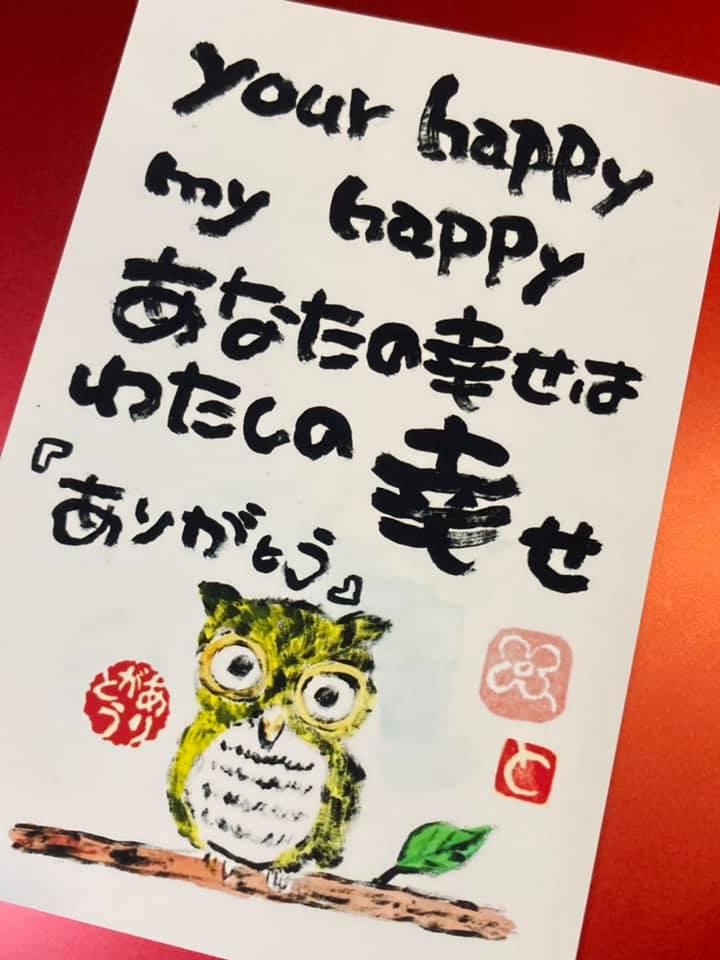 your happy
my happy
あなたの幸せは
わたしの幸せ
『ありがとう』
ありがとう
と